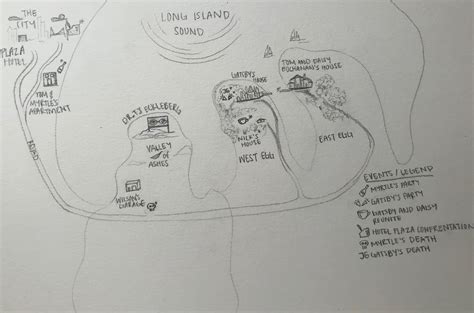 THE
CITY
PLAZA
HOTEL
TOM &
MYRTLE'S
APARTMENT
ROAD
LONG ISLAND
SOUND
DR. TJ ECKLEBERG
VALLEY
OF
ASHES
WILSON'S
GARAGE
GATSBY'S
HOUSE
NICK'S
HOUSE
WEST EGG
TOM AND DAISY
BUCHANAN'S HOUSE
EAST EGG
EVENTS / LEGEND
MYRTLE'S PARTY
GATSBY'S PARTY
GATSBY AND DAISY
REUNITE
HOTEL PLAZA CONFRONTATION
MYRTLE'S DEATH
JG GATSBY'S DEATH